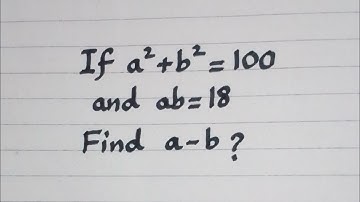 If a²+b²=100
and ab=18
Find a-b?